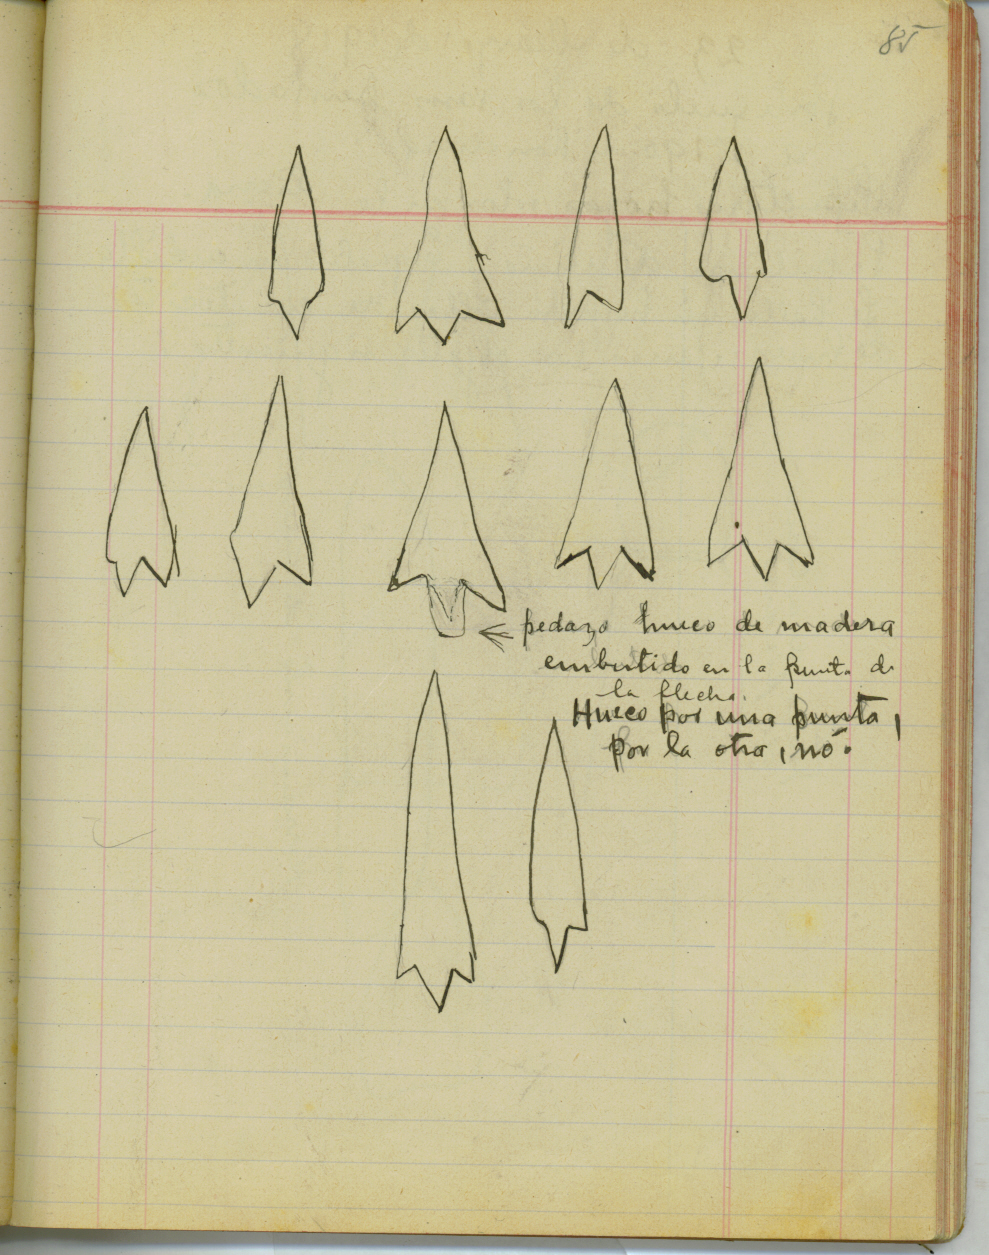 85
pedazo hueco de madera
embutido en la punta de
la flecha.
Hueco por una punta,
por la otra, nó.